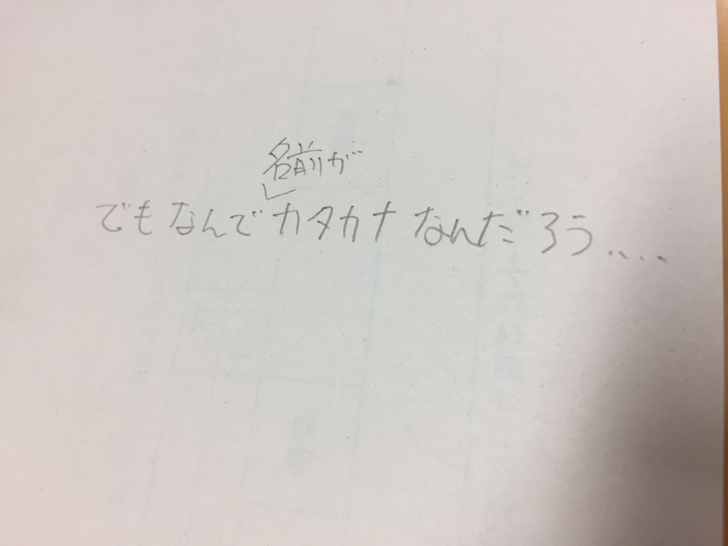 名前が
でもなんでカタカナなんだろう....